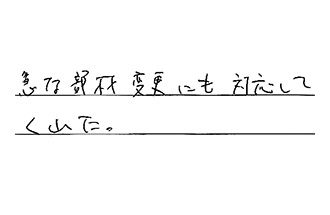 急な部材変更にも対応して
くれた。